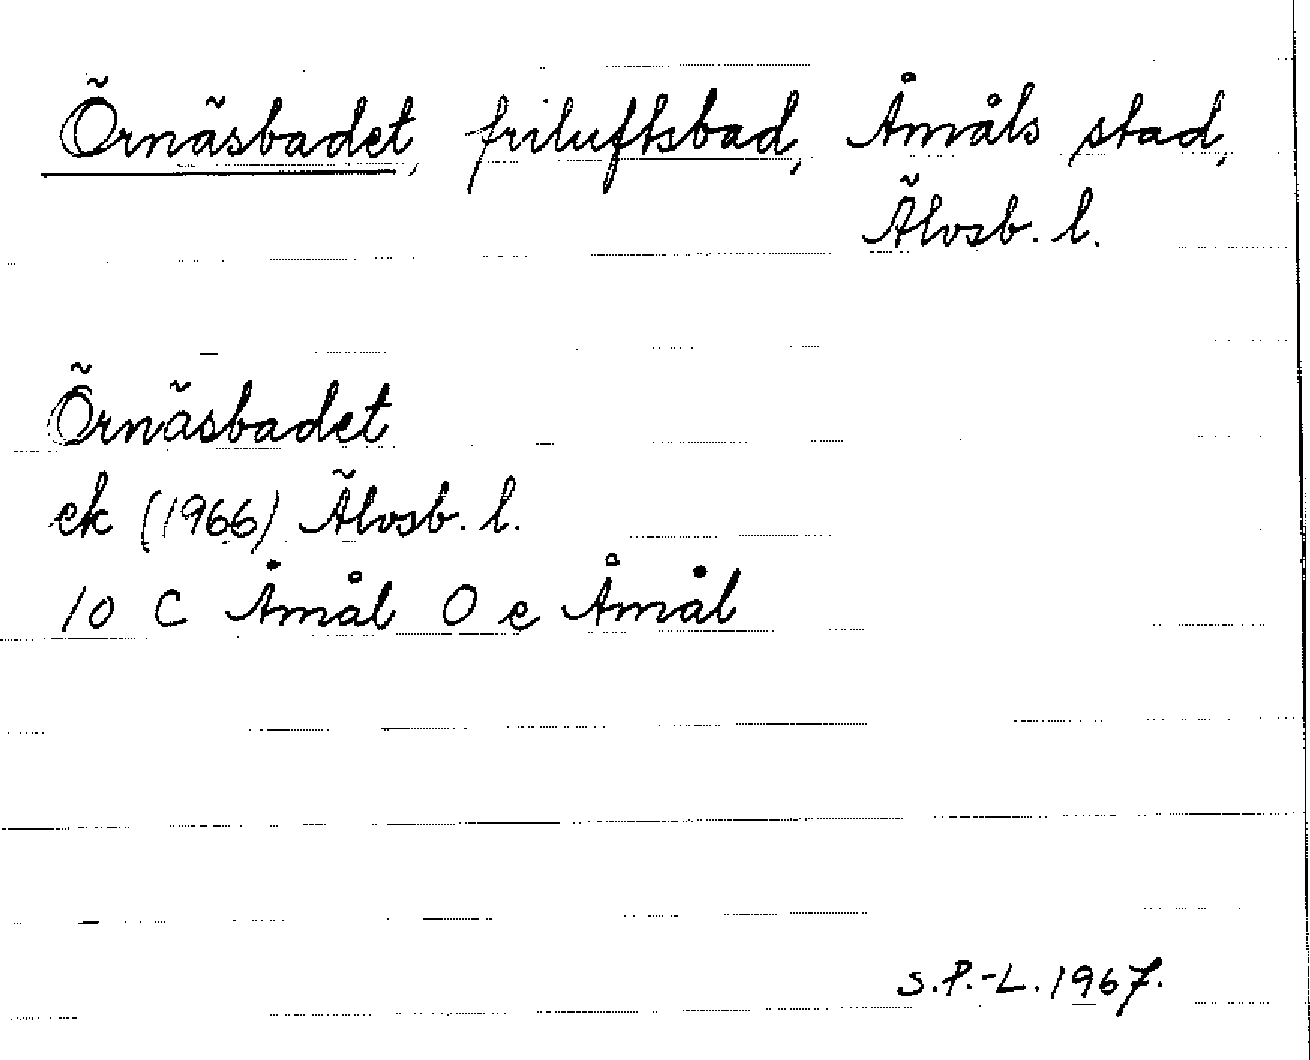 Örnäsbadet, friluftsbad, Åmåls stad,
Älvsb. l.
Örnäsbadet
ek (1966) Älvsb. l.
10 C Åmål O e Åmål
S.P.-L. 1967.